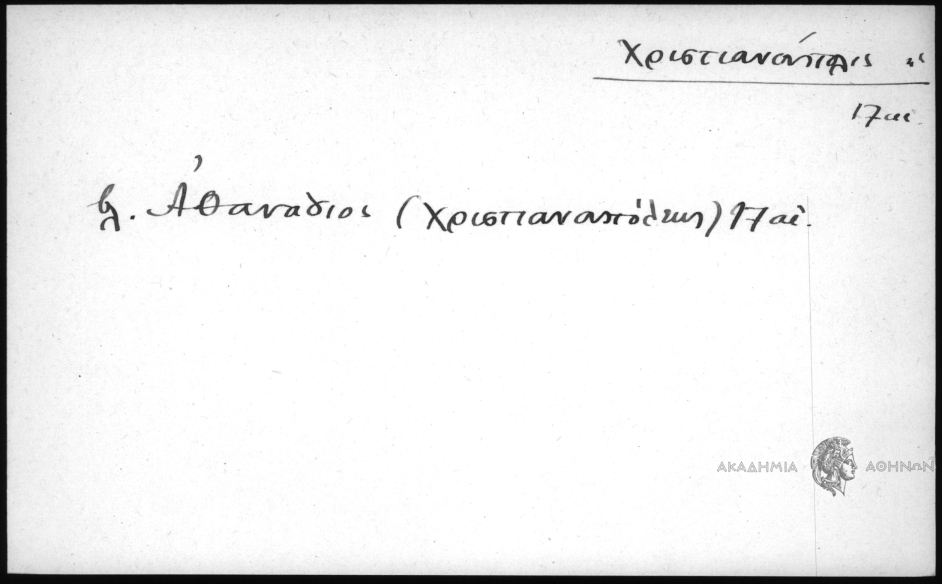 Χριστιανόπολις
17 αἰ.
βλ. Ἀθανάσιος (Χριστιανουπόλεως) 17 αἰ.
ΑΚΑΔΗΜΙΑ ΑΘΗΝΩΝ